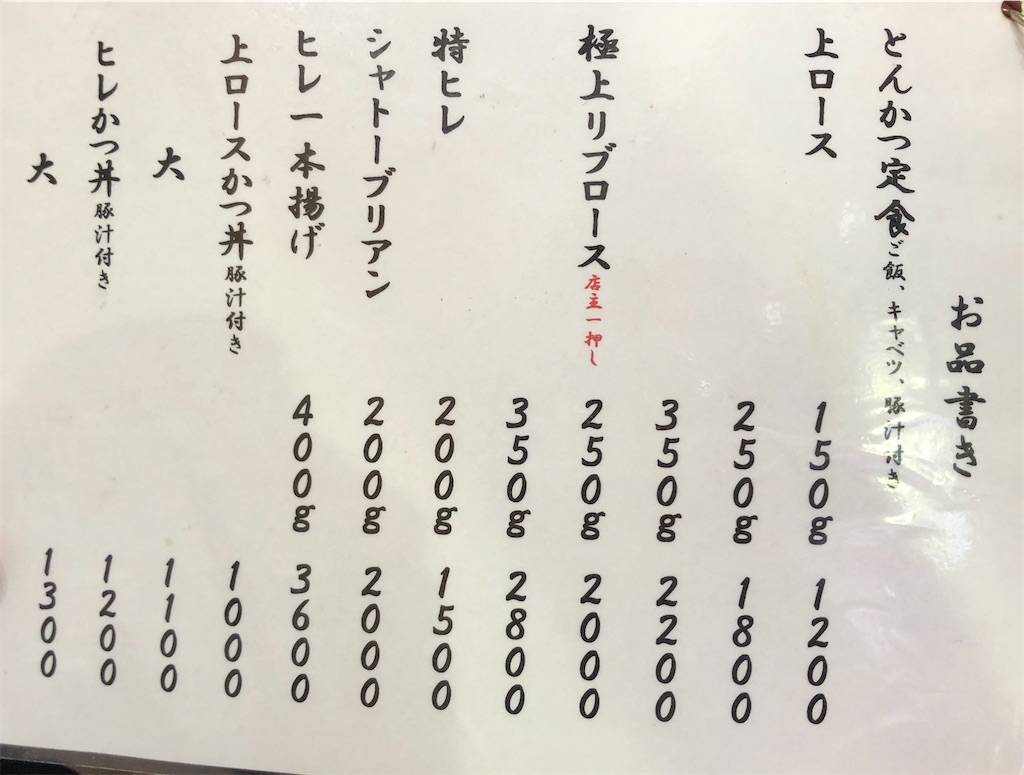 お品書き
とんかつ定食ご飯、キャベツ、豚汁付き
上ロース 150g 1200
250g 1800
350g 2200
極上リブロース店主一押し 250g 2000
350g 2800
特ヒレ 200g 1500
シャトーブリアン 200g 2000
ヒレ一本揚げ 400g 3600
上ロースかつ丼豚汁付き 1000
大 1100
ヒレかつ丼豚汁付き 1200
大 1300